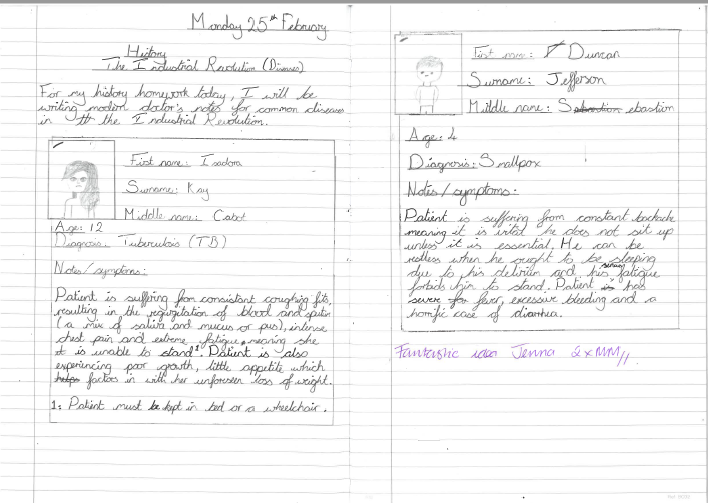 Monday 25th February
History
The Industrial Revolution (Diseases)
For my history homework today, I will be
writing modern doctor's notes for common diseases
in the Industrial Revolution.
First name: Isadora
Surname: Kay
Middle name: Cabot
Age: 12
Diagnosis: Tuberculosis (TB)
Notes/symptoms:
Patient is suffering from consistent coughing fits,
resulting in the regurgitation of blood and sputum
(a mix of saliva and mucus or pus), intense
chest pain and extreme fatigue, meaning she
is unable to stand1. Patient is also
experiencing poor growth, little appetite which
factors in with her unforeseen loss of weight.
1: Patient must be kept in bed or a wheelchair.
First name: Duncan
Surname: Jefferson
Middle name: Sebastion
Age: 4
Diagnosis: Smallpox
Notes/symptoms:
Patient is suffering from constant backache
meaning it is vital he does not sit up
unless it is essential. He can be
restless when he ought to be sleeping
dye to his delirium and his serious fatigue
forbids him to stand. Patient has
fever, excessive bleeding and a
horrific case of diarrhea.
Fantastic idea Jenna 2xMM//